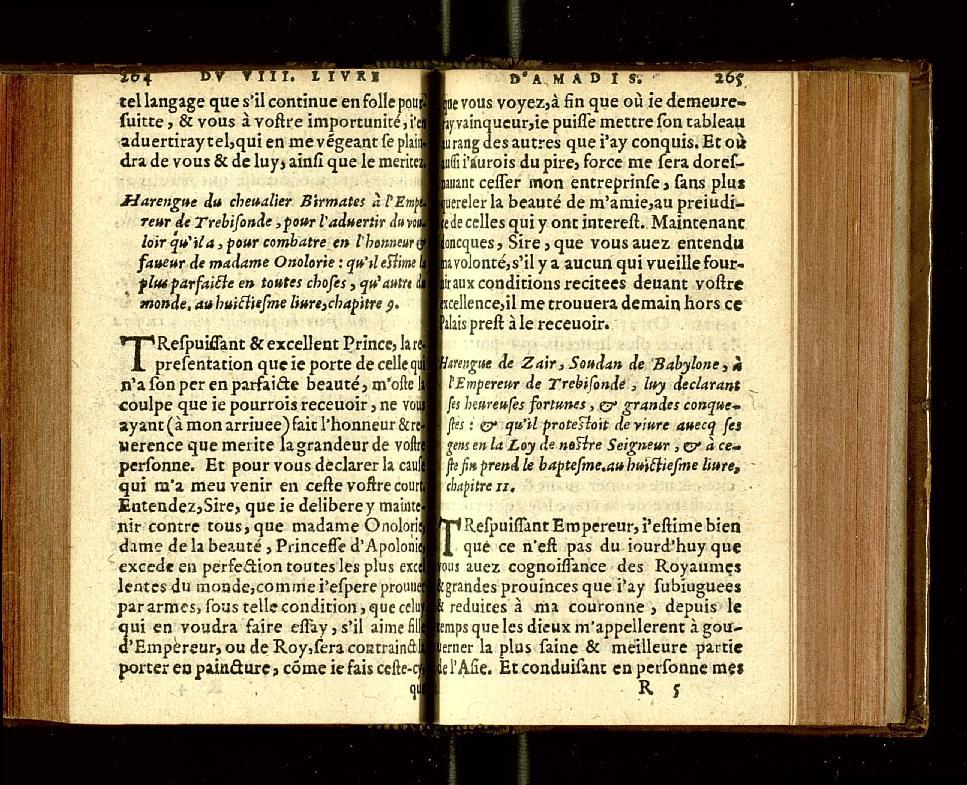 264 DV VIII. LIVRE
tel langage que s'il continue en folle pour-
ſuitte, & vous à voſtre importunité, i'en
aduertiray tel, qui en me vẽgeant ſe plain-
dra de vous & de luy, ainſi que le meritez.
Harengue du cheualier Birmates à l'Empe-
reur de Trebiſonde, pour l'aduertir du vou-
loir qu'il a, pour combatre en l'honneur &
faueur de madame Onolorie: qu'il eſtime la
plus parfaicte en toutes choſes, qu'autre du
monde. au huictieſme liure, chapitre 9.
TReſpuiſſant & excellent Prince, la re-
preſentation que ie porte de celle qui
n'a ſon per en parfaicte beauté, m'oſte la
coulpe que ie pourrois receuoir, ne vous
ayant (à mon arriuee) fait l'honneur & re-
uerence que merite la grandeur de voſtre
perſonne. Et pour vous declarer la cauſe
qui m'a meu venir en ceſte voſtre court,
Entendez, Sire, que ie delibere y mainte-
nir contre tous, que madame Onolorie,
dame de la beauté, Princeſſe d'Apolonie,
excede en perfection toutes les plus excel
lentes du monde, comme i'eſpere prouuer
par armes, ſous telle condition, que celuy
qui en voudra faire eſſay, s'il aime fille
d'Empereur, ou de Roy, ſera contrainct la
porter en paincture, cõme ie fais ceſte-cy,
que
D'AMADIS. 265
que vous voyez, à fin que où ie demeure-
ray vainqueur, ie puiſſe mettre ſon tableau
au rang des autres que i'ay conquis. Et où
auſſi i'aurois du pire, force me ſera doreſ-
nauant ceſſer mon entreprinſe, ſans plus
quereler la beauté de m'amie, au preiudi-
ce de celles qui y ont intereſt. Maintenant
doncques, Sire, que vous auez entendu
ma volonté, s'il y a aucun qui vueille four-
nir aux conditions recitees deuant voſtre
excellence, il me trouuera demain hors ce
Palais preſt à le receuoir.
Harengue de Zair, Soudan de Babylone, à
l'Empereur de Trebiſonde, luy declarant
ſes heureuſes fortunes, & grandes conque-
ſtes: & qu'il proteſtoit de viure auecq ſes
gens en la Loy de noſtre Seigneur, & à ce-
ſte fin prend le bapteſme. au huictieſme liure,
chapitre 11.
TReſpuiſſant Empereur, i'eſtime bien
que ce n'eſt pas du iourd'huy que
vous auez cognoiſſance des Royaumes
& grandes prouinces que i'ay ſubiuguees
& reduites à ma couronne, depuis le
temps que les dieux m'appellerent à gou-
uerner la plus ſaine & meilleure partie
de l'Aſie. Et conduiſant en perſonne mes
R 5